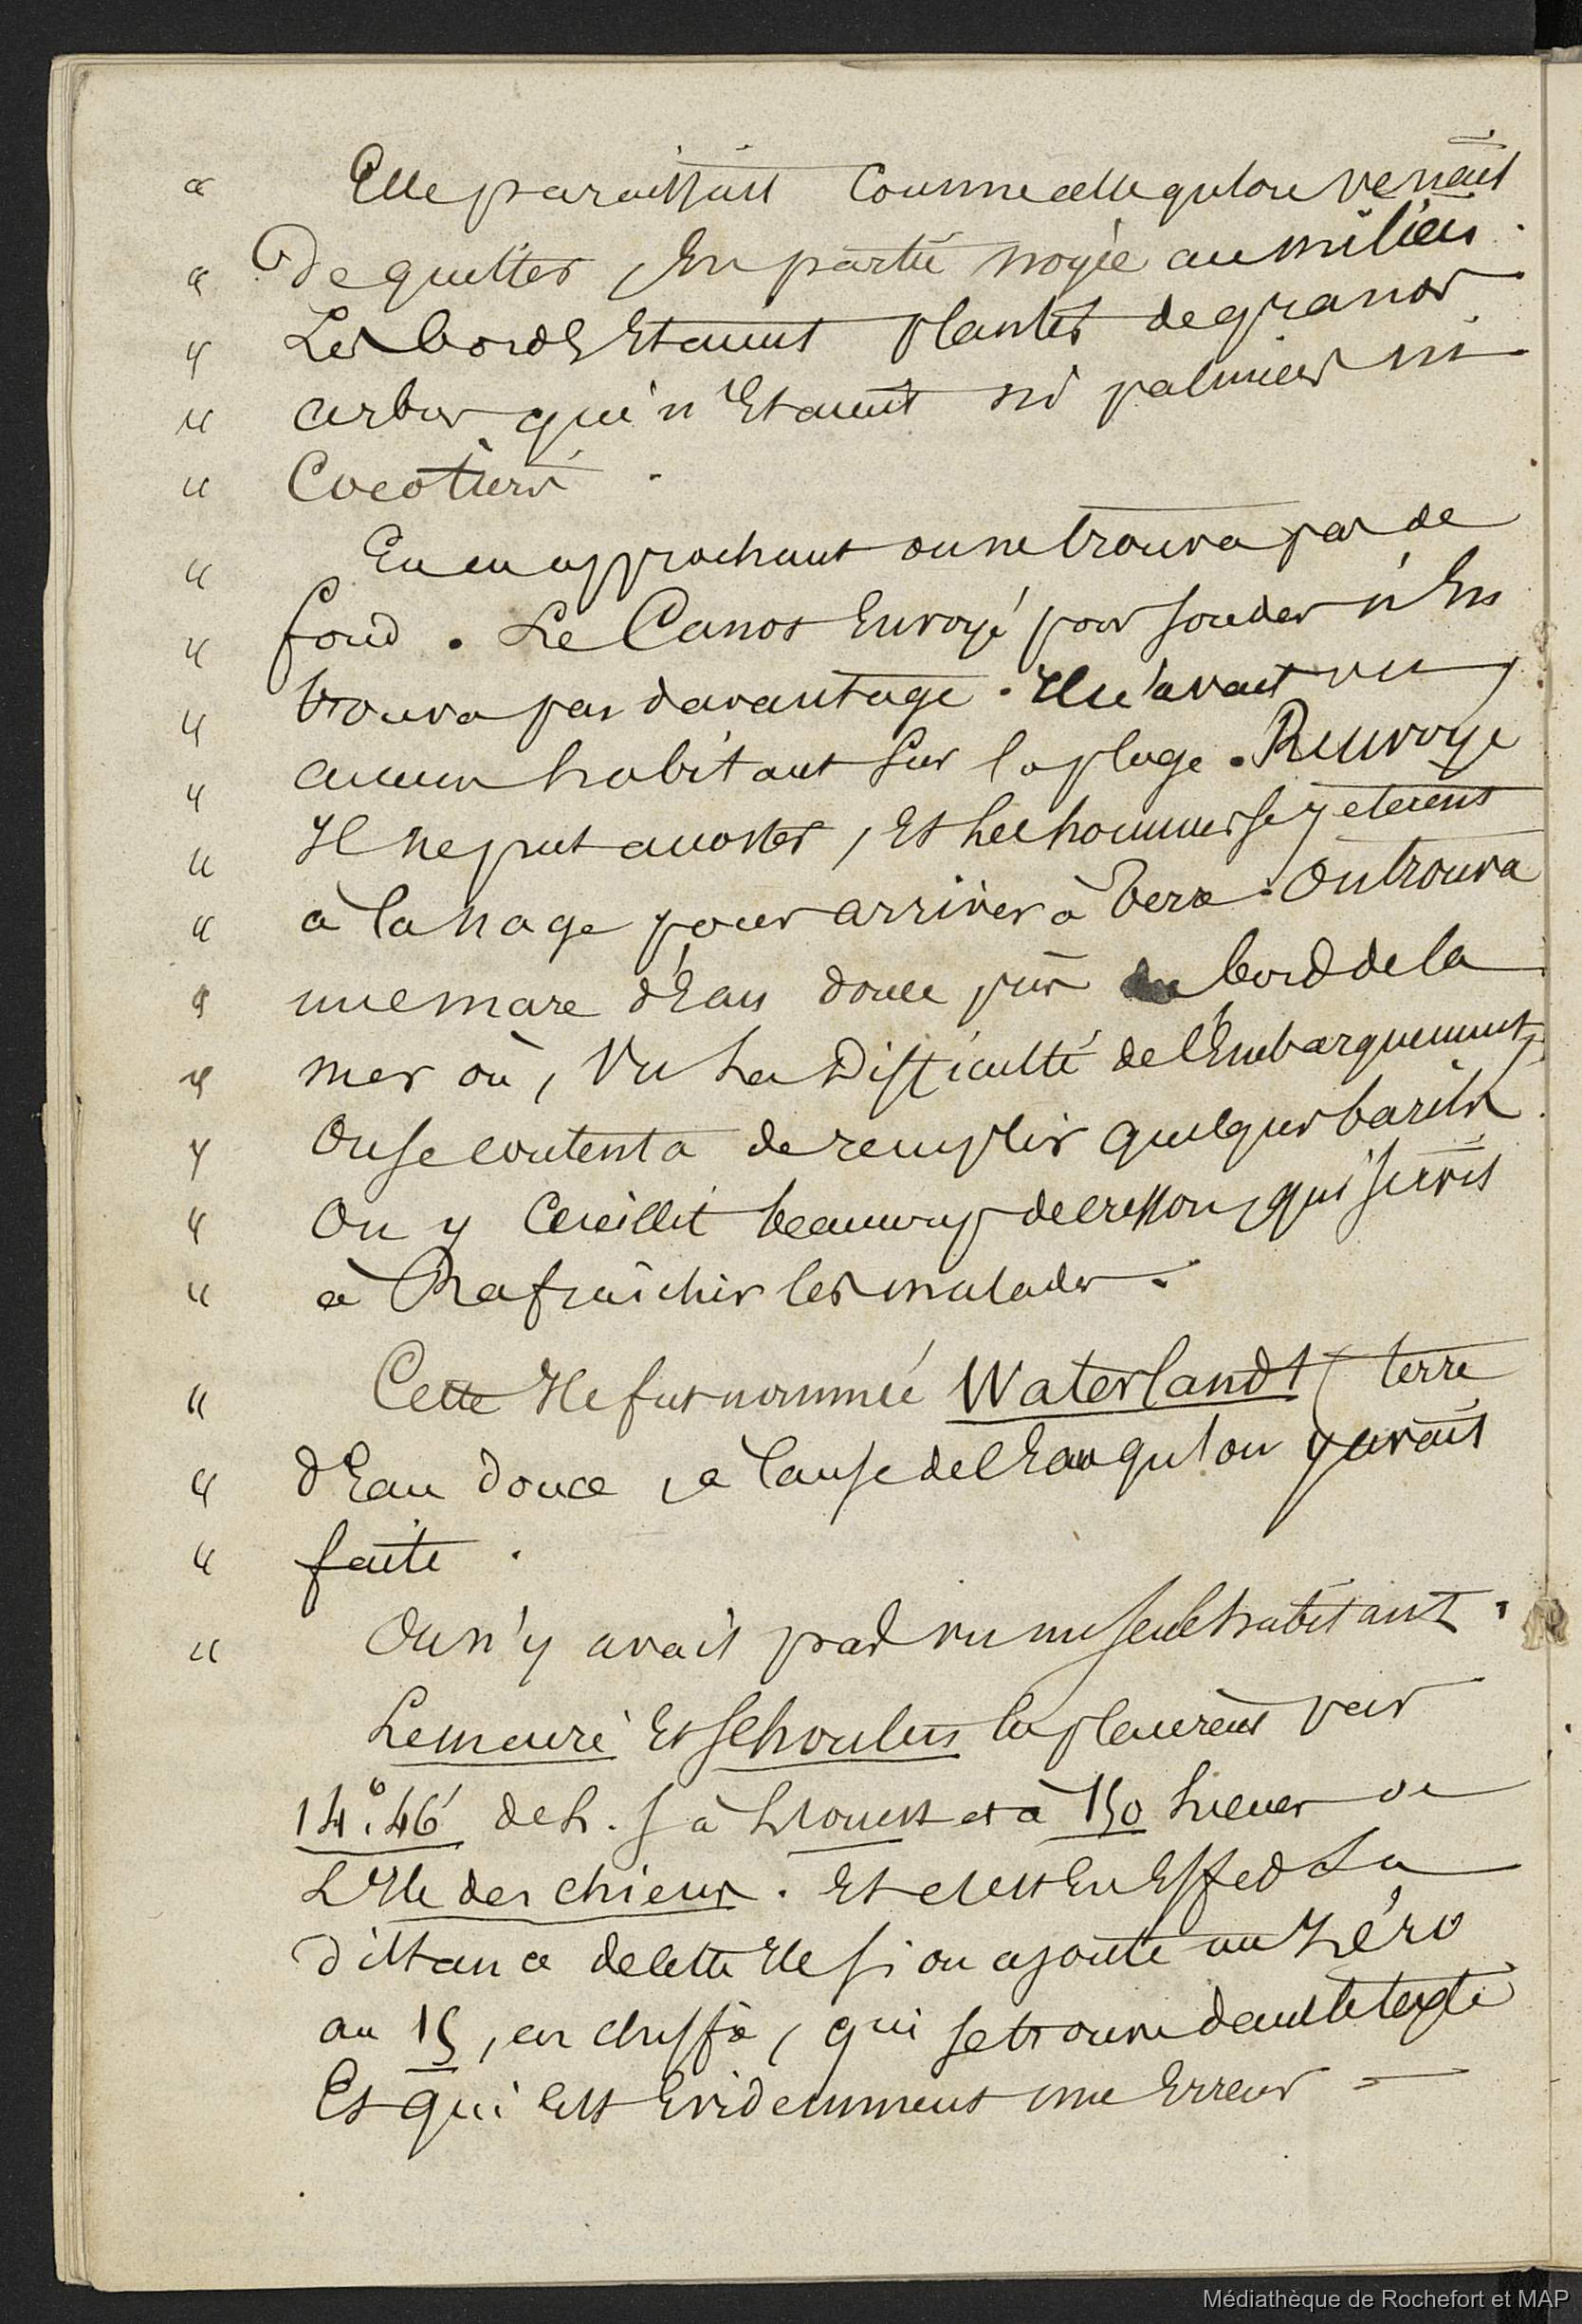 " Elle paraissait comme celle qu'on venait
" de quitter, En partie noyée au milieu.
" Les bords Etaient plantés de grands
" arbres qui n'Etaient ni palmiers ni
" Cocotiers.
" En en approchant on ne trouva pas de
" fond. Le Canot Envoyé pour sonder n'En
" trouva pas davantage. Il n'avait vu
" aucun habitant sur la plage. Renvoyé
" Il ne put accoster, Et les hommes se jetèrent
" à la nage pour arriver à Terre. On trouva
" une mare d'Eau douce près du bord de la
" mer où, Vu La Difficulté de l'Embarquement,
" On se contenta de remplir quelques barils.
" On y Cueillit beaucoup de cresson, qui servit
" à Rafraîchir les malades.
" Cette Ile fut nommée Waterlandt (terre
" d'Eau douce, à Cause de l'Eau qu'on y avait
" faite.
" On n'y avait pas vu un seul habitant.
Lemaire Et Schouten la placèrent par
14°.46' de L. S à L'Ouest et à 150 Lieues de
L'Ile des chiens. Et c'est En Effet La
distance de cette Ile si on ajoute un Zéro
au 15, en chiffre, qui se trouve dans le texte
Et qui Est Evidemment une Erreur =
Médiathèque de Rochefort et MAP